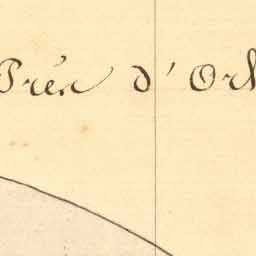 Prés d'Orb